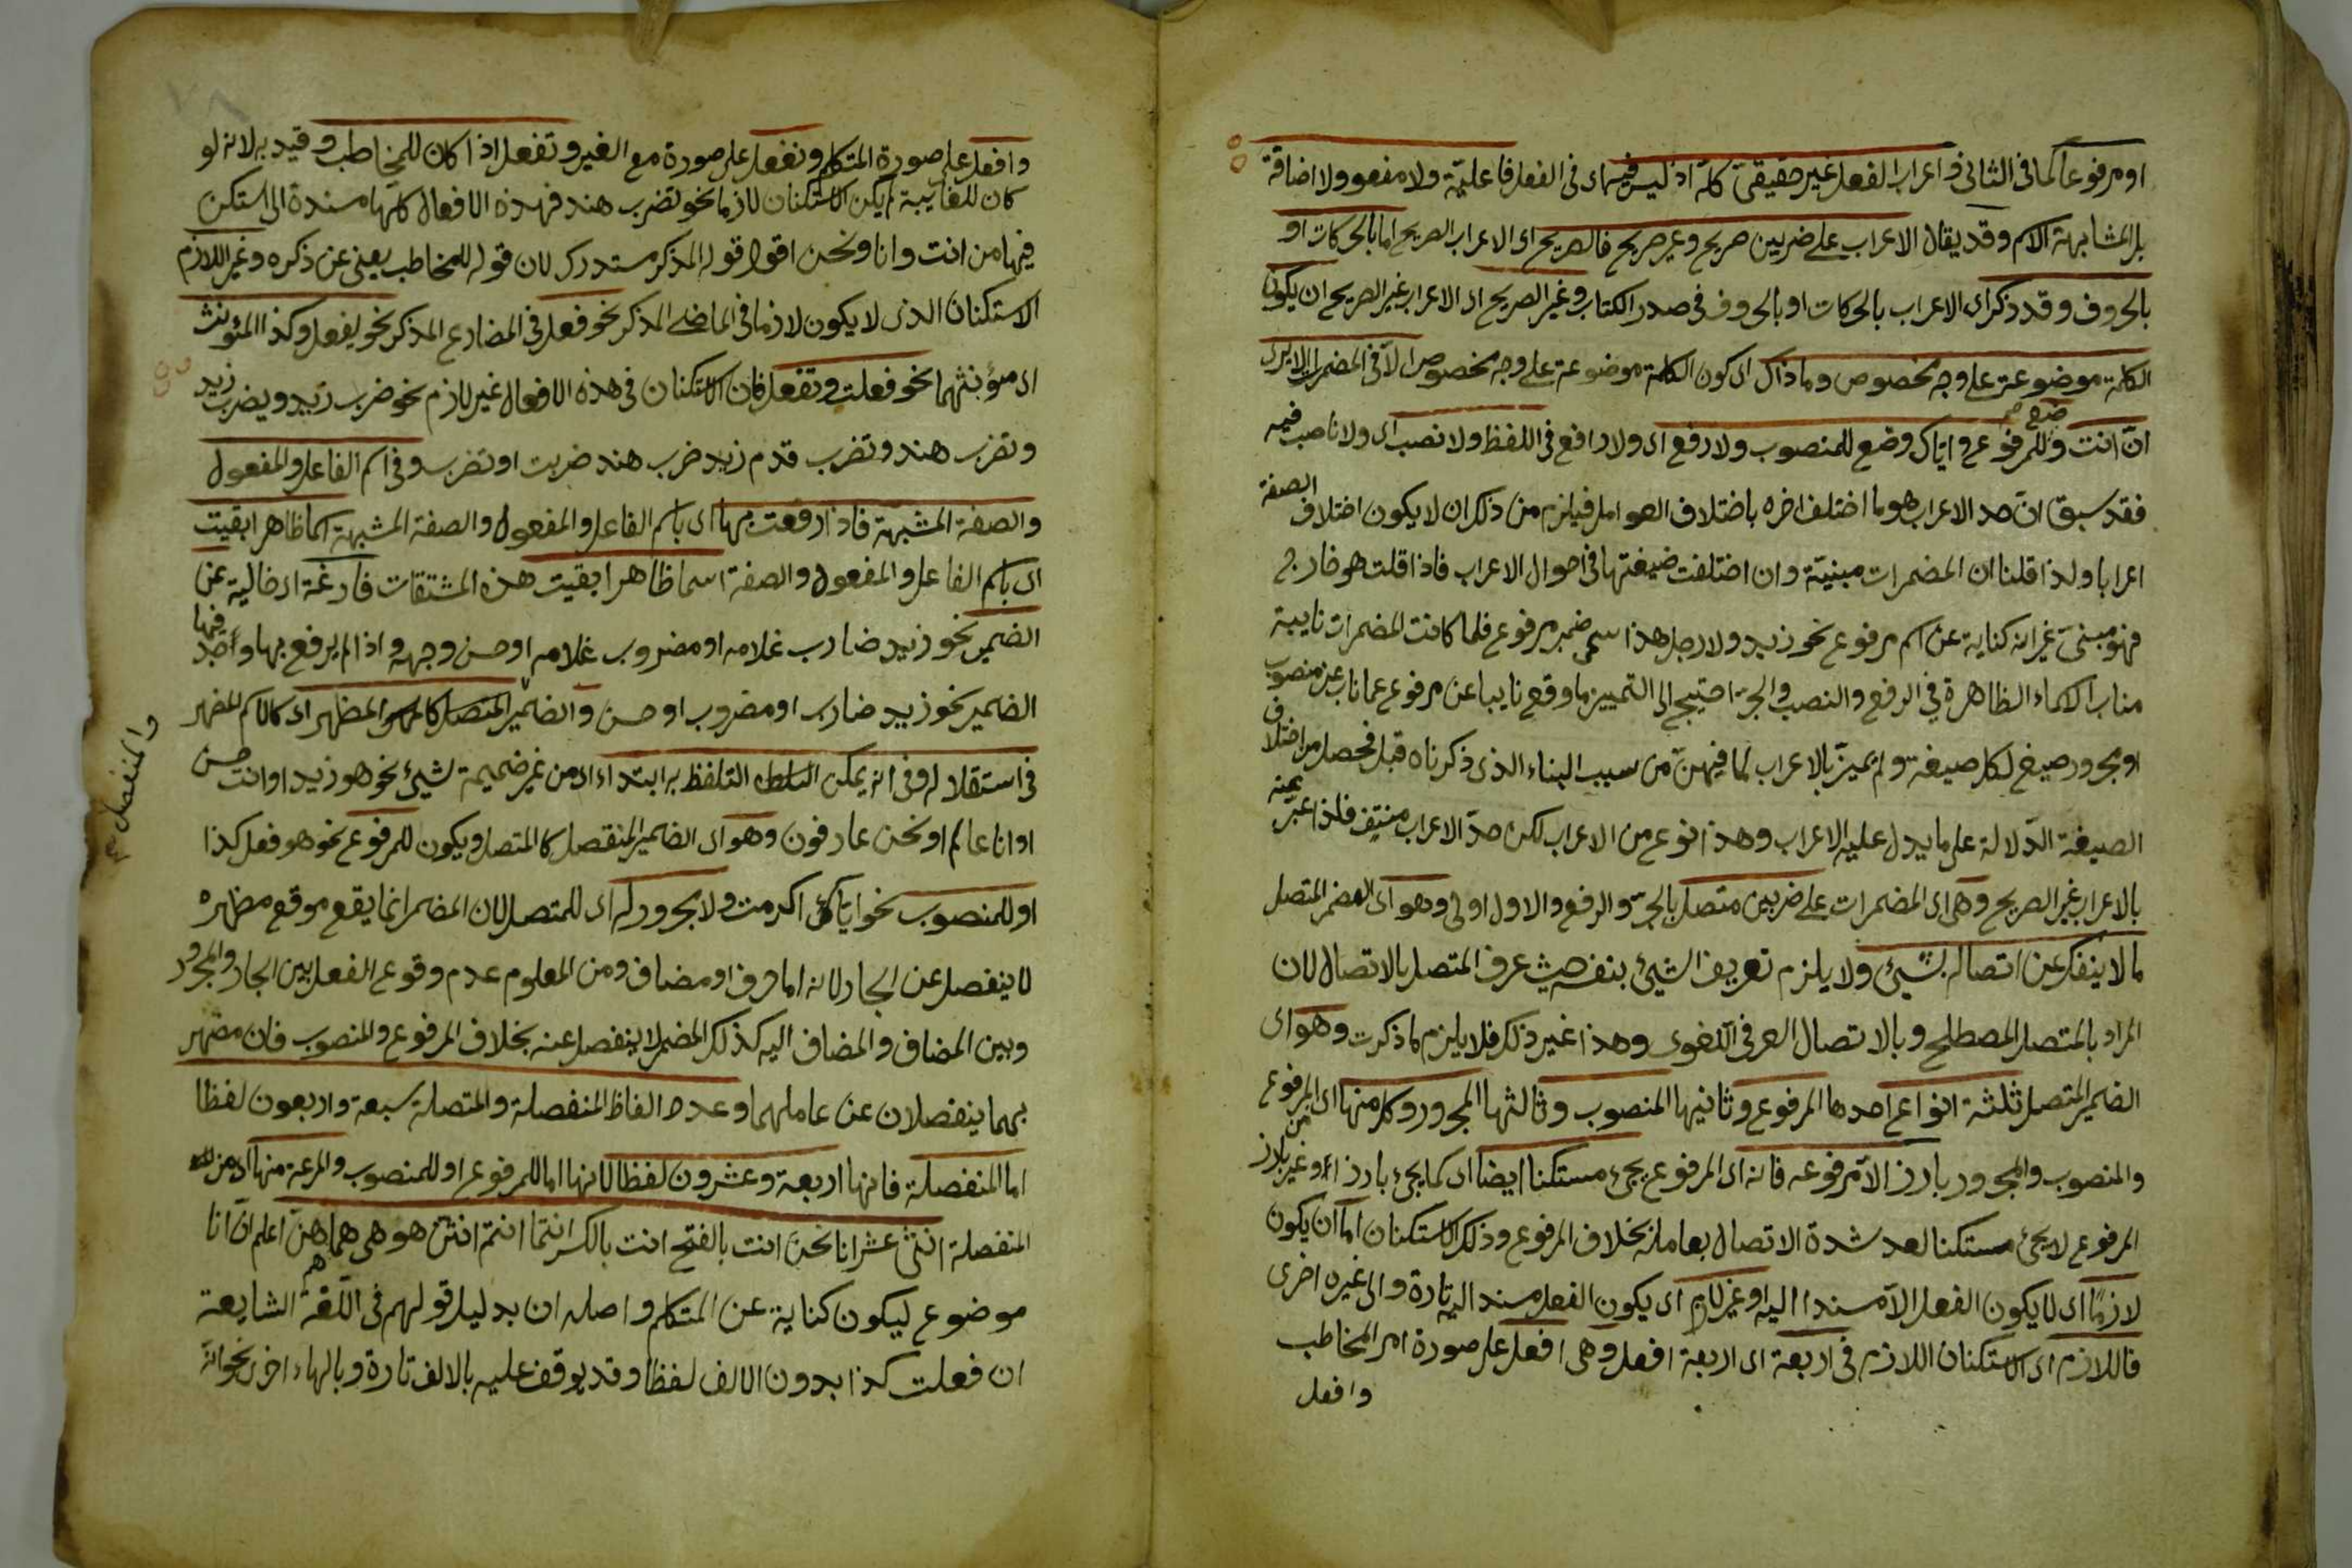 او مرفوعا كما فى الثانى و اعراب الفعل غير حقيقى كله اذ ليس فيه اى فى الفعل فاعلية ولا مفعو ولا اضافة
بل المشابهة الاسم وقد يقال الاعراب على ضربين صريح وغير صريح فالصريح اى الاعراب الصريح اما بالحركات او
بالحروف وقد ذكر اى الاعراب بالحركات او بالحروف فى صدر الكتاب وغير الصريح اى الاعراب غير الصريح ان يكون
الكلمة موضوعة على وجه مخصوص وما ذاك اى كون الكلمة موضوعة على وجه مخصوص الا فى المضمرات الا يرى
ان انت وضع للمرفوع و اياك وضع للمنصوب ولا رفع اى ولا رافع فى اللفظ ولا نصب اى ولا ناصب فيه
فقد سبق ان حد الاعراب هو ما اختلف اخره باختلاف العوامل فيلزم من ذلك ان لا يكون اختلاف الصفة
اعرابا ولذا قلنا ان المضمرات مبنية وان اختلفت صيغتها فى احوال الاعراب فاذا قلت هو خارج
فهو مبنى غير انه كناية عن اسم مرفوع نحو زيد ولا رجل هذا سمى ضمير مرفوع فلما كانت المضمرات نايبة
مناب الاسماء الظاهرة فى الرفع والنصب والجر احتيج الى التمييز ما وقع نايبا عن مرفوع عما ناب عن منصوب
او مجرور صيغ لكل صيغة ولم يميز بالاعراب لما فيهن من سبب البناء الذى ذكرناه قبل فحصل من اختلاف
الصيغة الدلالة على ما يدل عليه الاعراب وهذا نوع من الاعراب لكن حد الاعراب منتف فلذا عبر عنه
بالاعراب غير الصريح وهى اى المضمرات على ضربين متصل بالجر والرفع والاول اولى وهو اى المضمر المتصل
ما لا ينفك عن اتصاله بشيئ ولا يلزم تعريف الشيئ بنفسه حيث عرف المتصل بالاتصال لان
المراد بالمتصل المصطلح وبالاتصال العرفى اللغوى وهذا غير ذلك فلا يلزم ما ذكرت وهو اى
الضمير المتصل ثلثة انواع احدها المرفوع وثانيها المنصوب وثالثها المجرور وكل منها اى المرفوع
والمنصوب والمجرور بارز الا مرفوعه فانه اى المرفوع يجئ مستكنا ايضا اى كما يجئ بارزا وغير بارز من
المرفوع لا يجئ مستكنا لعد شدة الاتصال بعامله بخلاف المرفوع وذلك الاستكنان اما ان يكون
لازما اى لا يكون الفعل الا مسندا اليه او غير لازم اى يكون الفعل مسندا اليه تارة والى غيره اخرى
فاللازم اى الاستكنان اللازم فى اربعة اى اربعة افعل وهى افعل على صورة امر المخاطب
وافعل
وافعل على صورة المتكلم ونفعل على صورة مع الغير وتفعل اذا كان للمخاطب وقيد به لانه لو
كان للغايبة لم يكن الاستكنان لازما نحو تضرب هند فهذه الافعال كلها مسندة الى استكن
فيها من انت وانا ونحن اقول قوله المذكر مستدرك لان قوله للمخاطب يعنى عن ذكره وغير اللازم
الاستكنان الذى لا يكون لازما فى الماضى المذكر نحو فعل فى المضارع المذكر نحو يفعل وكذا المؤنث
اى مؤنثهما نحو فعلت وتفعل فان الاستكنان فى هذه الافعال غير لازم نحو ضرب زيد ويضرب زيد
وتضرب هند وتضرب قدم زيد ضرب هند ضربت او تضرب وفى اسم الفاعل والمفعول
والصفة المشبهة فاذا رفعت بها اى باسم الفاعل والمفعول والصفة المشبهة اسما ظاهرا بقيت
اى باسم الفاعل والمفعول والصفة اسما ظاهرا بقيت هذه المشتقات فارغة اى خالية عن
الضمير نحو زيد ضارب غلامه او مضروب غلامه او حسن وجهه واذا لم يرفع بها واحد فيها
الضمير نحو زيد ضارب او مضروب او حسن والضمير المتصل كا لمظهر اى كالاسم المظهر
والمنفصل
فى استقلاله وفى انه يمكن التلفظ به ابتداء اى من غير ضميمة شيئ نحو هو زيد او انت حسن
او انا عالم او نحن عارفون وهو اى الضمير المنفصل كالمتصل ويكون للمرفوع نحو هو فعل كذا
او للمنصوب نحو اياك اكرمت ولا مجرور له اى للمتصل لان المضمر انما يقع موقع مظهره
لا ينفصل عن الجار لانه اما حرف او مضاف ومن المعلوم عدم وقوع الفعل بين الجار والمجرور
وبين المضاف والمضاف اليه كذلك المضمر لا ينفصل عنه بخلاف المرفوع والمنصوب فان مضهر
بهما ينفصلان عن عاملهما وعدد الفاظ المنفصلة والمتصلة سبعة واربعون لفظا
اما المنفصلة فانها اربعة وعشرون لفظا لانها اما للمرفوع او للمنصوب والمرعة منها اى من
المنفصلة اثنى عشر انا نحن انت بالفتح انت بالكسر انتما انتم انتن هو هى هما هم هن اعلم ان انا
موضوع ليكون كناية عن المتكلم واصله ان بدليل قولهم فى اللغة الشايعة
ان فعلت كذا بدون الالف لفظا وقد يوقف عليه بالالف تارة وبالهاء اخرى نحو انه